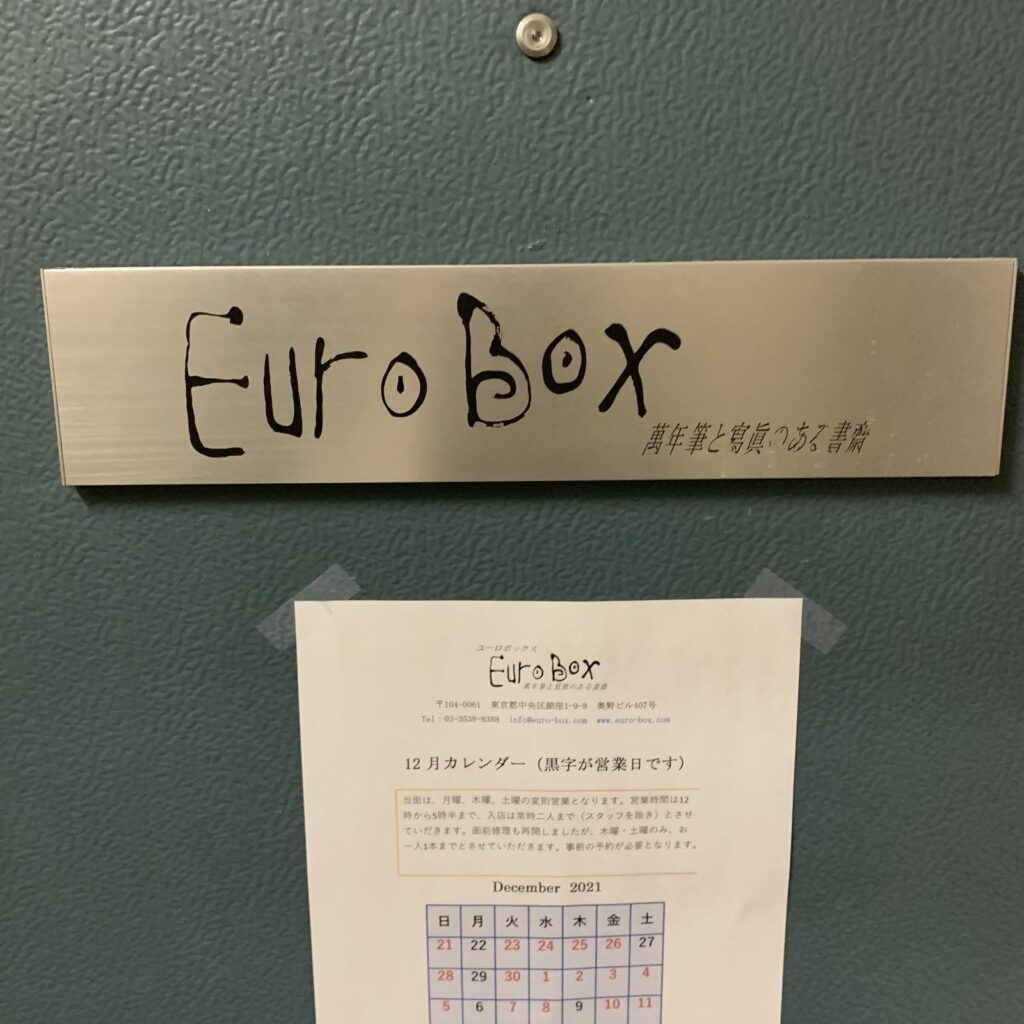 Euro Box
萬年筆と寫眞のある書齋
ユーロボックス
Euro Box
萬年筆と寫眞のある書齋
〒104-0061 東京都中央区銀座1-9-8 奥野ビル407号
Tel：03-3538-8388 info@euro-box.com www.euro-box.com
12月カレンダー（黒字が営業日です）
当面は、月曜、木曜、土曜の変則営業となります。営業時間は12
時から5時半まで、入店は常時二人まで（スタッフを除き）とさせ
ていだきます。面前修理も再開しましたが、木曜・土曜のみ、お
一人1本までとさせていただきます。事前の予約が必要となります。
December 2021
日 月 火 水 木 金 土
21 22 23 24 25 26 27
28 29 30 1 2 3 4
5 6 7 8 9 10 11